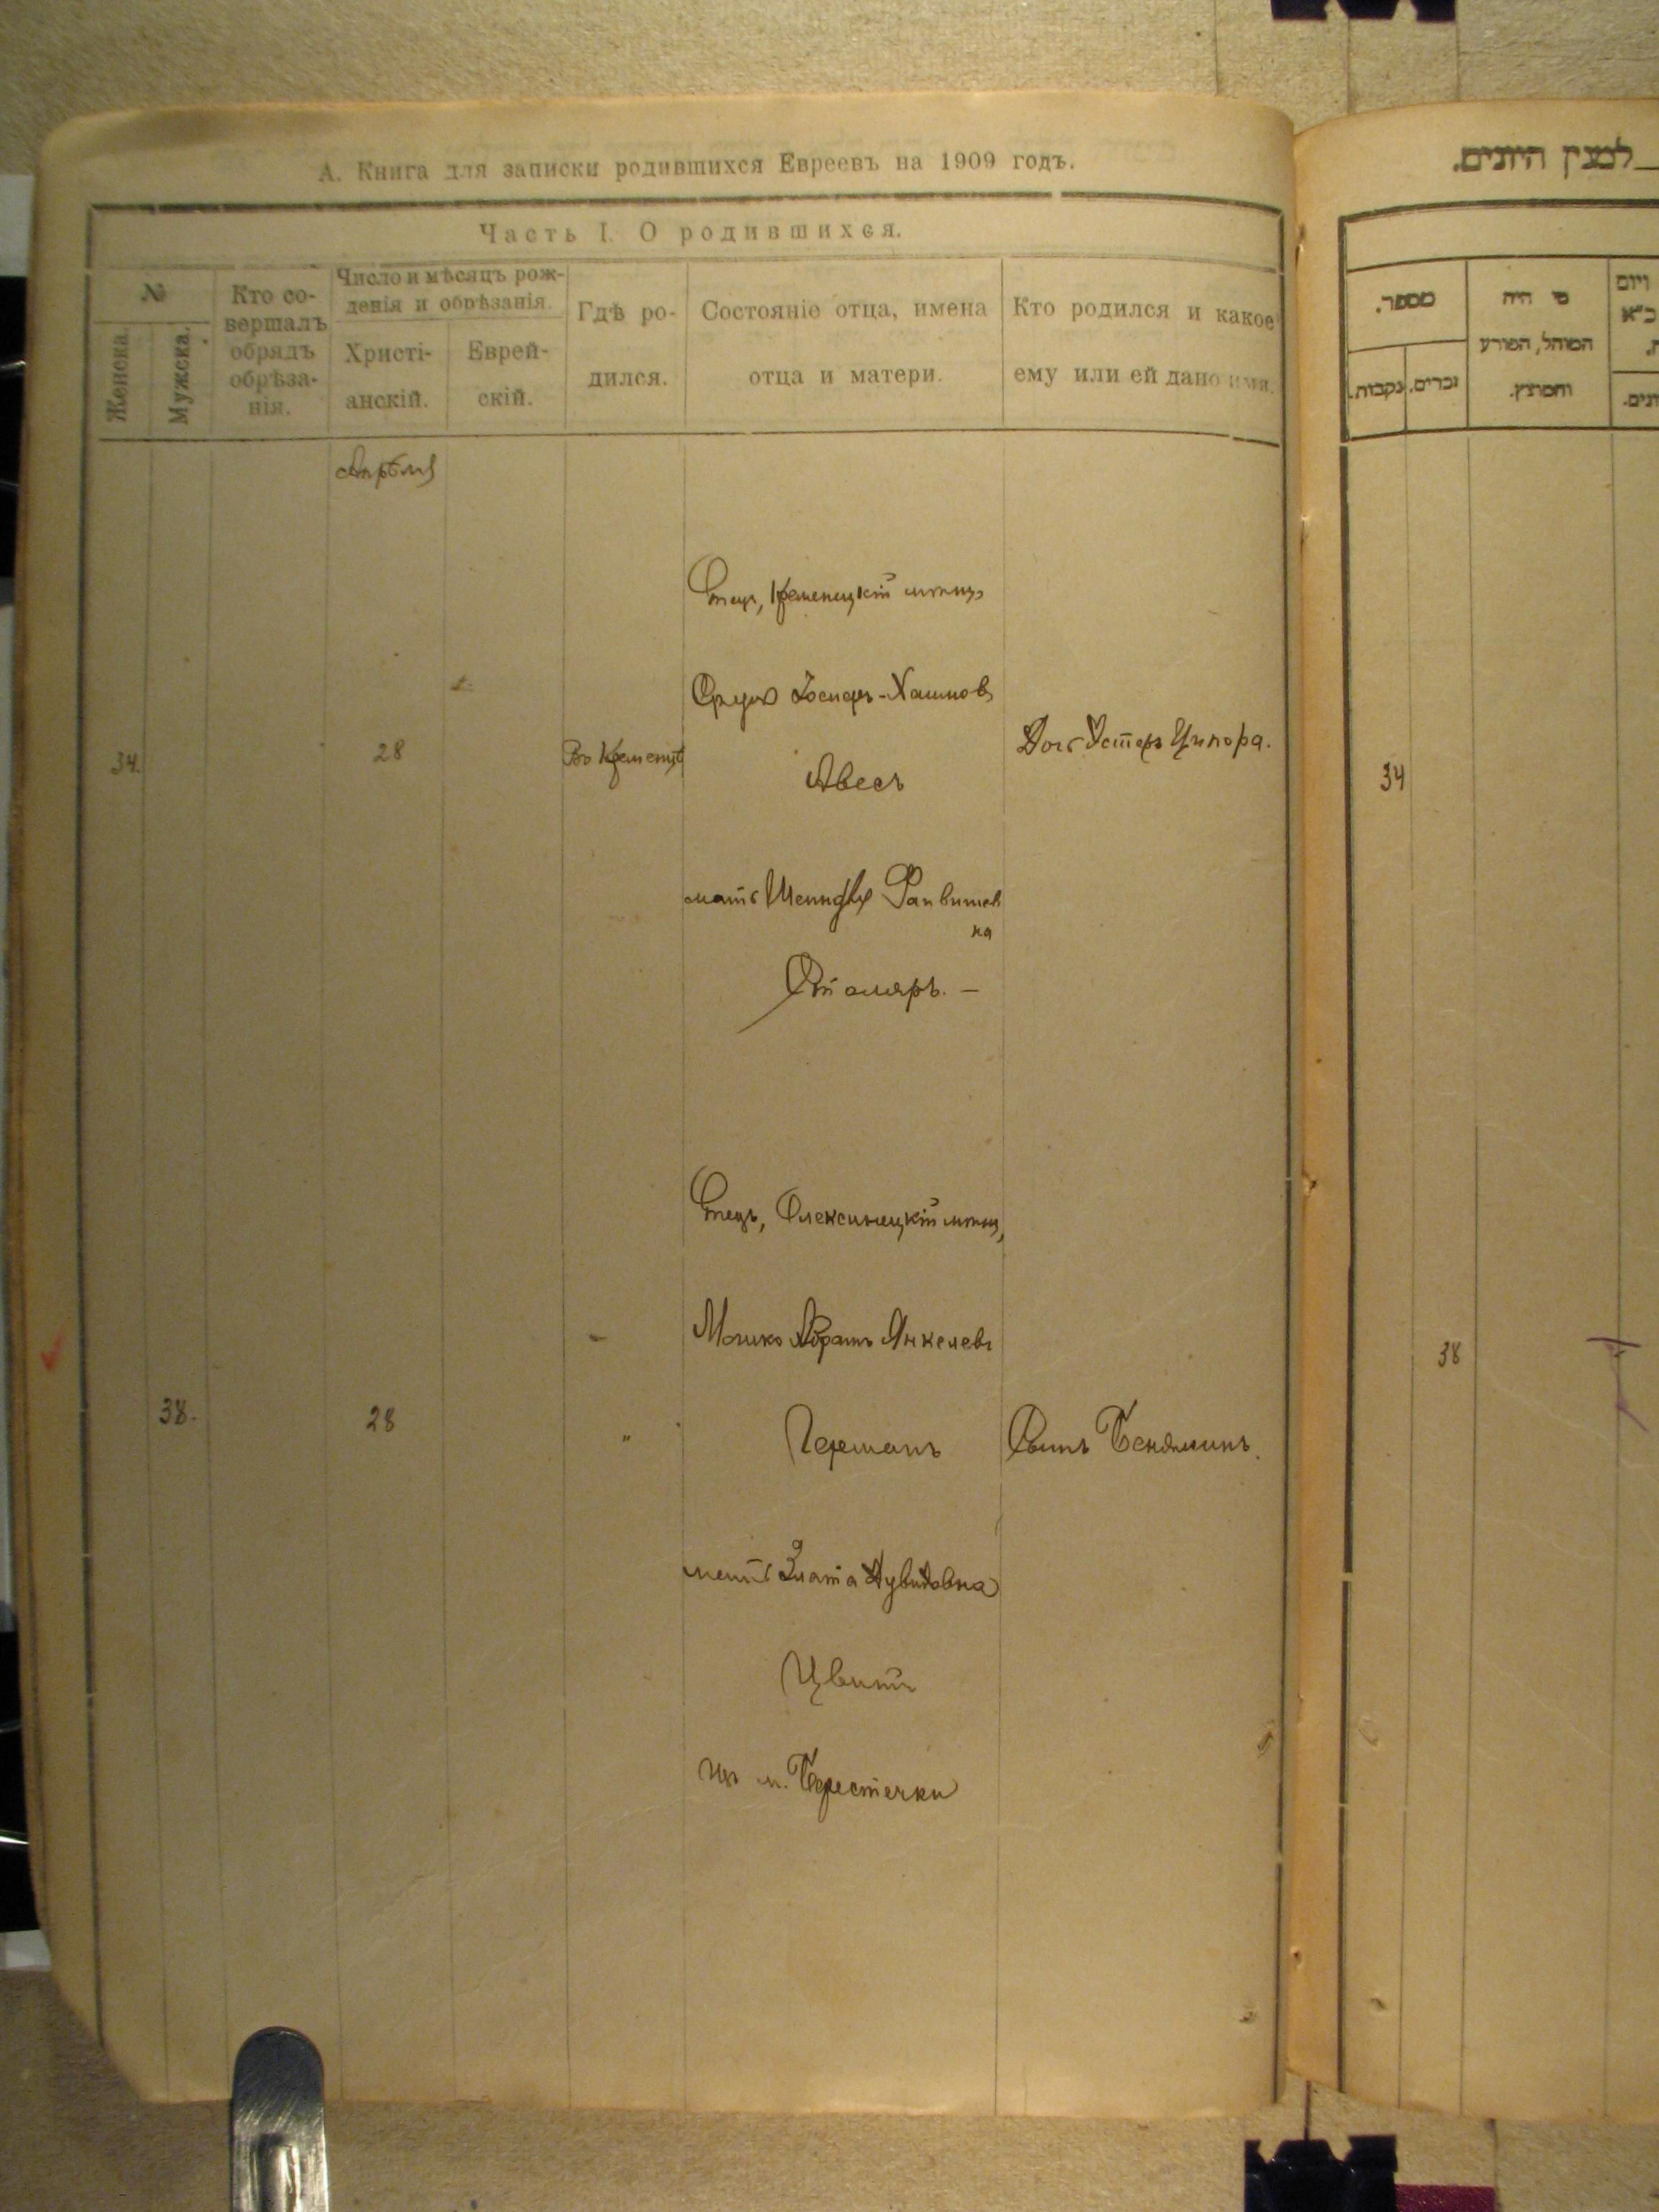 А. Книга для записки родившихся Евреевъ на 1909 годъ.
Часть I. О родившихся.
№
Женска.
Мужска.
Кто со-
вершалъ
обрядъ
обрѣза-
нія.
Число и мѣсяцъ рож-
денія и обрѣзанія.
Христі-
анскій.
Еврей-
скій.
Гдѣ ро-
дился.
Состояніе отца, имена
отца и матери.
Кто родился и какое
ему или ей дано имя.
Апрѣля
34.
28
Въ Кременцѣ
Отец, Кременецкій мѣщ.
Іосифъ-Хаимовъ
Авесъ
мать
на
Столяръ. —
Дочь Эстеръ Ципора.
38.
28
"
Отецъ, Олексинецкій мѣщ,
Мошко Абрамъ Янкелевъ
Германъ
мать Злата Дувидовна
Цвитъ
изъ м. Берестечки
Сынъ Беняминъ.
למנין היונים.
מספר.
נקבות.
זכרים.
מי היה
המוהל, הפורע
והמוצץ.
ויום
34
38